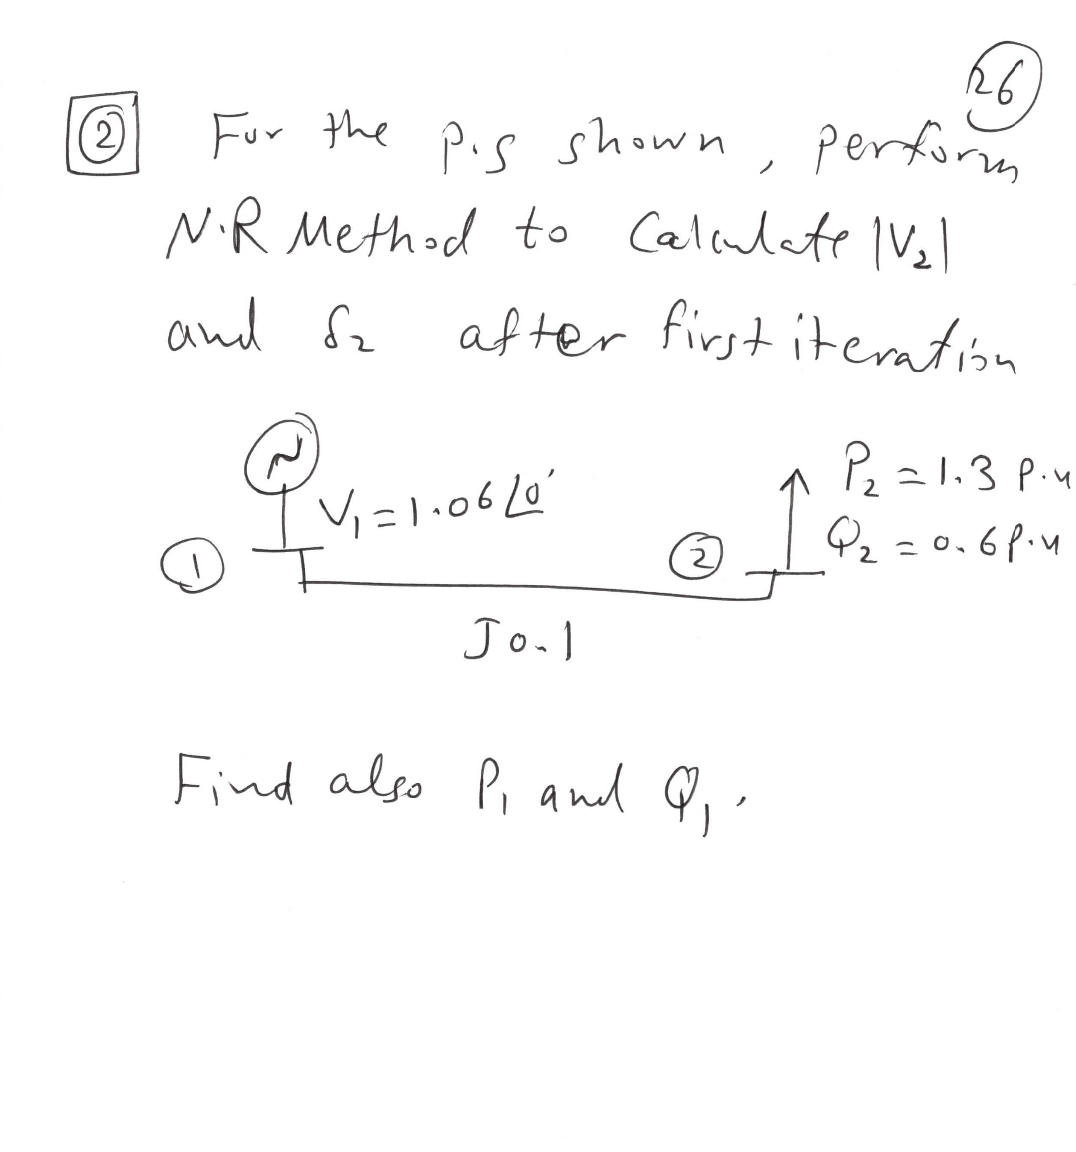 26
2 For the p.s shown, perform
N.R Method to Calculate |V₂|
and δ₂ after first iteration
V₁ = 1.06∠0° P₂ = 1.3 p.u
1 2 Q₂ = 0.6 p.u
J0.1
Find also P₁ and Q₁.